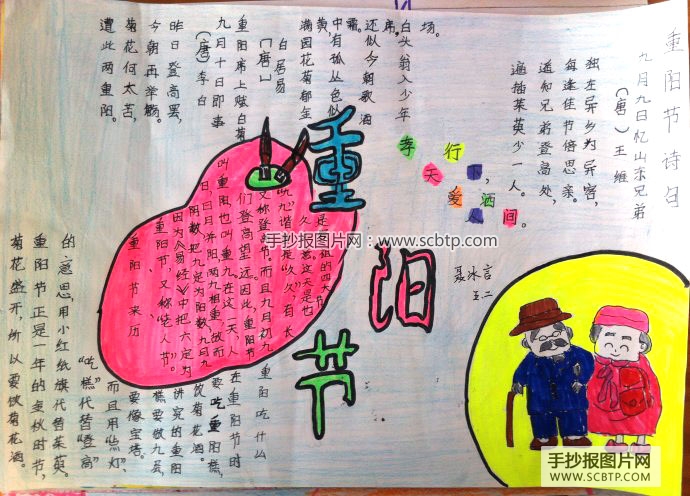 重阳节诗句
九月九日忆山东兄弟
(唐)王维
独在异乡为异客,
每逢佳节倍思亲。
遥知兄弟登高处,
遍插茱萸少一人。
孝行天下,
爱洒人间。
聂冰言
五二
重阳节
场。
白头翁入少年
席。
还似今朝歌酒
霜。
中有孤丛色似
黄,
满园花菊郁金
白居易
〔唐〕
重阳席上赋白菊
九月十日即事
(唐)李白
昨日登高罢,
今朝再举觞。
菊花何太苦,
遭此两重阳。
重阳节来历
重阳节,又称“老人节”。
因为《易经》中把六定为
阴数,把九定为阳数,九月九
日,日月并阳,两九相重,故而
叫重阳,也叫重九。在这一天,人
们登高望远,因此,重阳节
又称登高节。而且九月初九
“九九”谐音是“久久”,有长
重阳吃什么
在重阳节时
要吃重阳糕,
饮菊花酒。
讲究的重阳
糕要做九层,
要像宝塔。
而且用“点灯”
“吃糕代替“登高”
的意思,用小红纸旗代替茱萸。
重阳节正是一年的金秋时节,
菊花盛开,所以要饮菊花酒。
手抄报图片网:www.scbtp.com
手抄报图片网
WWW.SCBTP.COM